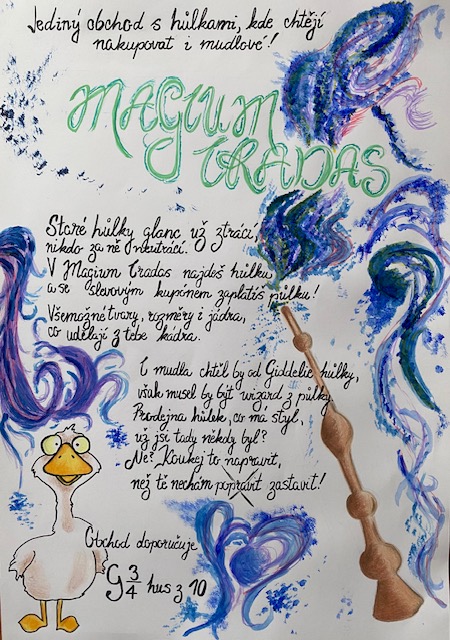 Jediný obchod s hůlkami, kde chtějí
nakupovat i mudlové!
MAGIUM
TRADAS
Staré hůlky glanc už ztrácí,
nikdo za ně neutrácí.
V Magium tradas najdeš hůlku
a se slevovým kupónem zaplatíš půlku!
Všemožné tvary, rozměry i jádra,
co udělají z tebe kádra.
I mudla chtěl by od Giddelie hůlky,
však musel by být wizard z půlky.
Prodejna hůlek, co má styl,
už jsi tady někdy byl?
Ne? Koukej to napravit,
než tě nechám popravit zastavit!
Obchod doporučuje
9 3/4 hus z 10